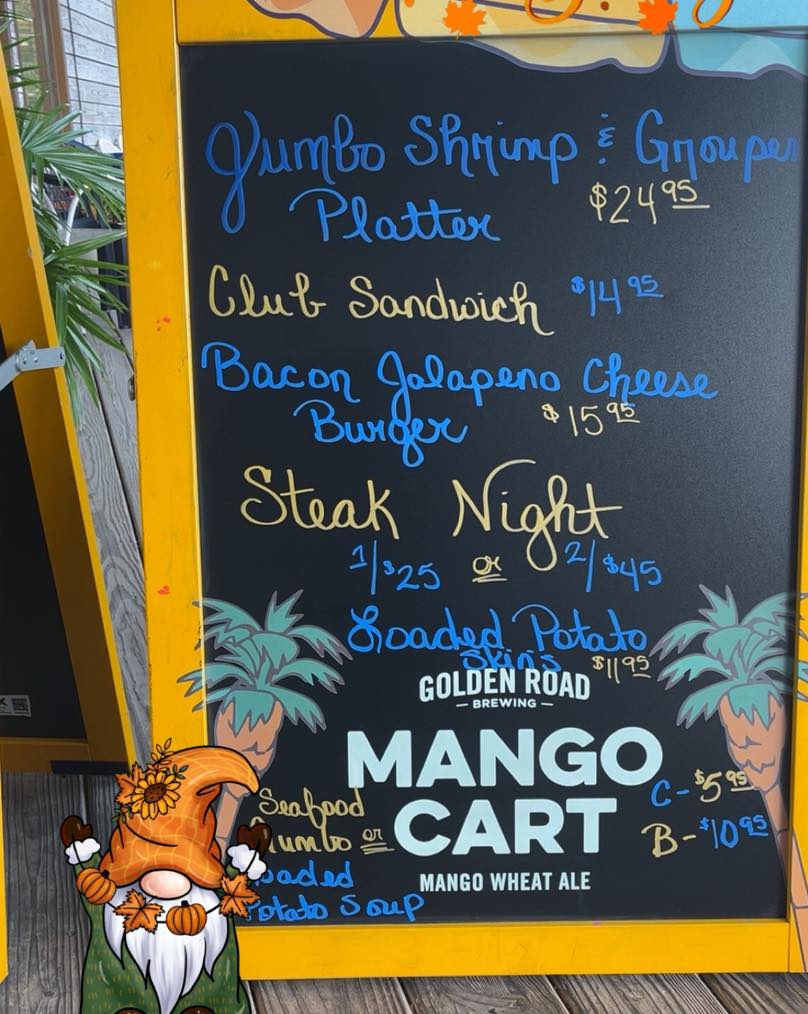 Jumbo Shrimp & Grouper
Platter $24.95
Club Sandwich $14.95
Bacon Jalapeno Cheese
Burger $15.95
Steak Night
1/$25 or 2/$45
Loaded Potato
Skins $11.95
GOLDEN ROAD
— BREWING —
MANGO
CART
MANGO WHEAT ALE
Seafood
Gumbo or
Loaded
Potato Soup
C-$5.95
B-$10.95